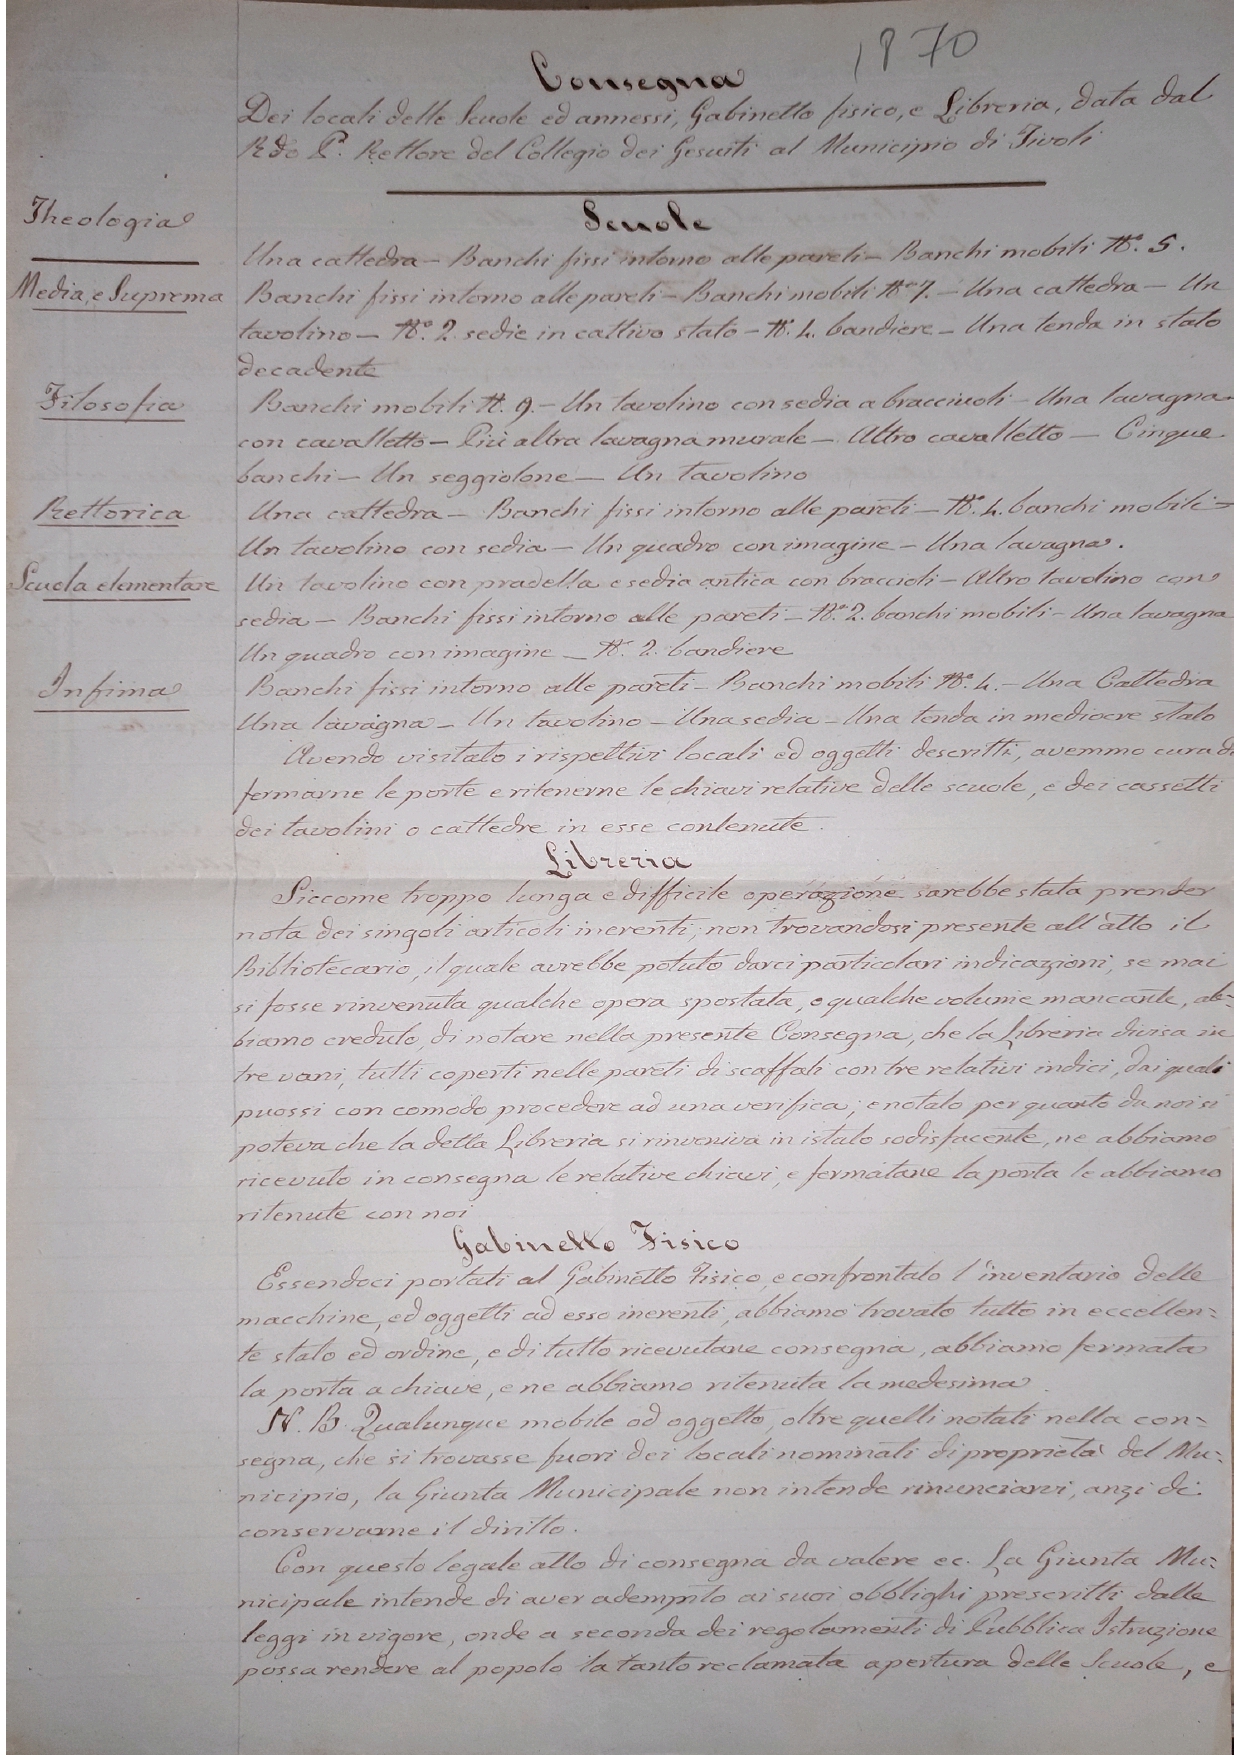 1870
Consegna
Dei locali delle Scuole ed annessi, Gabinetto fisico, e Libreria, data dal
Rdo P. Rettore del Collegio dei Gesuiti al Municipio di Tivoli
Scuole
Theologia
Una cattedra – Banchi fissi intorno alle pareti – Banchi mobili No. 5.
Media, e Suprema
Banchi fissi intorno alle pareti – Banchi mobili No 7. – Una cattedra – Un
tavolino – No. 2. sedie in cattivo stato – N. 4. bandiere – Una tenda in stato
decadente
Filosofia
Banchi mobili N. 9. – Un tavolino con sedia a bracciuoli – Una lavagna
con cavalletto – Più altra lavagna murale – Altro cavalletto – Cinque
banchi – Un seggiolone – Un tavolino
Rettorica
Una cattedra – Banchi fissi intorno alle pareti – No. 4. banchi mobili =
Un tavolino con sedia – Un quadro con imagine – Una lavagna.
Scuola elementare
Un tavolino con pradella e sedia antica con braccioli – Altro tavolino con
sedia – Banchi fissi intorno alle pareti – No. 2. banchi mobili – Una lavagna
Un quadro con imagine – N. 2. bandiere
Infima
Banchi fissi intorno alle pareti – Banchi mobili No. 4. – Una Cattedra
Una lavagna – Un tavolino – Una sedia – Una tenda in mediocre stato
Avendo visitato i rispettivi locali ed oggetti descritti, avemmo cura di
fermarne le porte e ritenerne le chiavi relative delle scuole, e dei cassetti
dei tavolini o cattedre in esse contenute.
Libreria
Siccome troppo lunga e difficile operazione sarebbe stata prender
nota dei singoli articoli inerenti, non trovandosi presente all'atto il
Bibliotecario, il quale avrebbe potuto darci particolari indicazioni, se mai
si fosse rinvenuta qualche opera spostata, o qualche volume mancante, ab=
biamo creduto, di notare nella presente Consegna, che la Libreria divisa in
tre vani, tutti coperti nelle pareti di scaffali con tre relativi indici, dai quali
puossi con comodo procedere ad una verifica; e notato per quanto da noi si
poteva che la detta Libreria si rinveniva in istato sodisfacente, ne abbiamo
ricevuto in consegna le relative chiavi, e fermatane la porta le abbiamo
ritenute con noi
Gabinetto Fisico
Essendoci portati al Gabinetto Fisico, e confrontato l'inventario delle
macchine, ed oggetti ad esso inerenti, abbiamo trovato tutto in eccellen=
te stato ed ordine, e di tutto ricevutane consegna, abbiamo fermata
la porta a chiave, e ne abbiamo ritenuta la medesima.
N. B. Qualunque mobile od oggetto, oltre quelli notati nella con=
segna, che si trovasse fuori dei locali nominati di proprietà del Mu=
nicipio, la Giunta Municipale non intende rinunciarvi, anzi di
conservarne il diritto.
Con questo legale atto di consegna da valere ec. La Giunta Mu=
nicipale intende di aver adempito ai suoi obblighi prescritti dalle
leggi in vigore, onde a seconda dei regolamenti di Pubblica Istruzione
possa rendere al popolo la tanto reclamata apertura delle Scuole, e